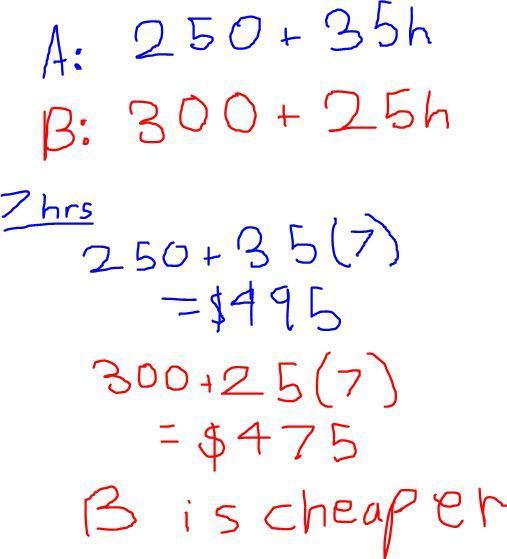 A: 250 + 35h
B: 300 + 25h
7 hrs
250 + 35(7)
= $495
300 + 25(7)
= $475
B is cheaper